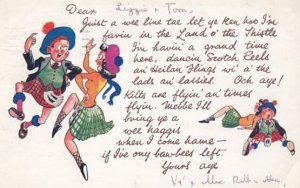 Dear Lizzie & Tom,
Juist a wee line tae let ye ken hoo I'm
farin in the Land o' the Thistle
I'm havin' a grand time
here, dancin Scotch Reels
an' Heilan Flings wi' a' the
lads an' lassies! Och aye!
Kilts are flyin' an' times
flyin. Mebbe I'll
bring ye a
wee haggis
when I come hame –
if I've ony bawbees left.
Yours aye
& Alec,